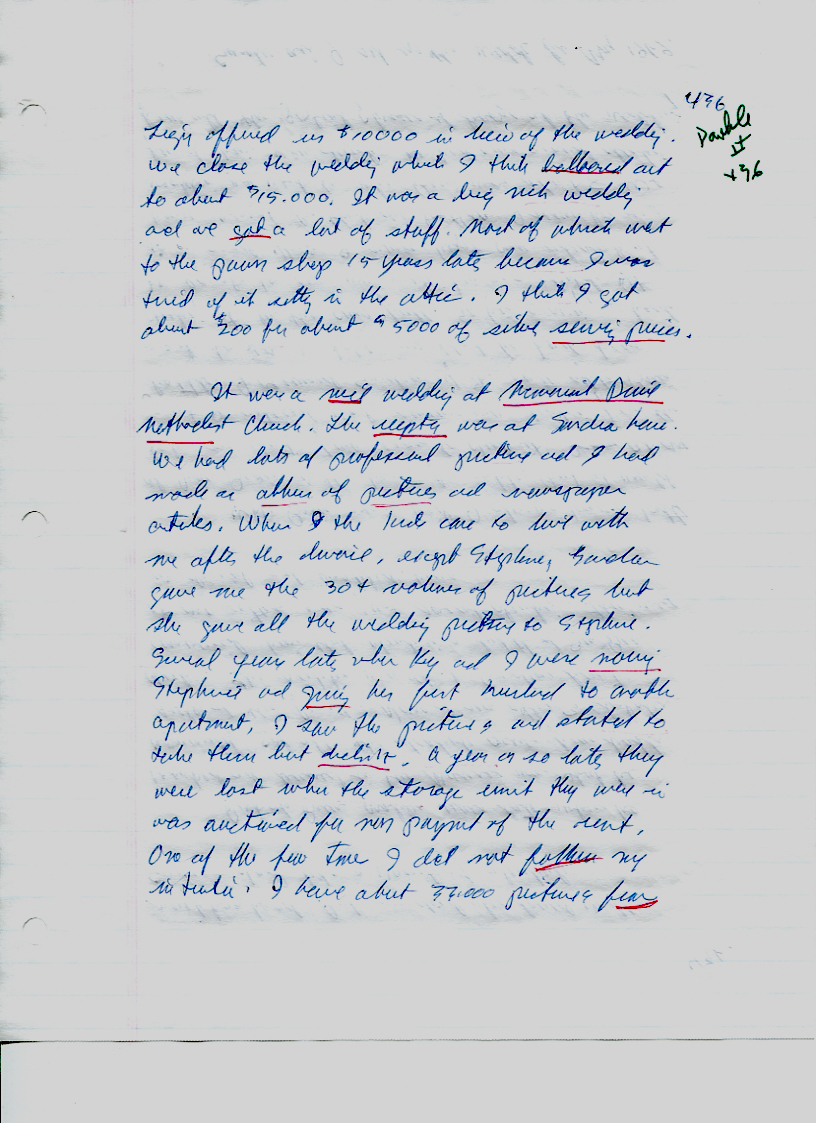 436
Double
II
436
offered us $10000 in lieu of the wedding.
We chose the wedding which I think out
to about $15.000. It was a big rich wedding
and we got a lot of stuff. Most of which went
to the pawn shop 15 years later because I was
tired of it sitting in the attic. I think I got
about $200 for about $5000 of silver serving pieces.
It was a nice wedding at Memorial Drive
Methodist Church. The was at home.
We had lots of professional picture and I had
made an album of pictures and newspaper
articles. When the kids came to live with
me after the divorce, except
gave me the 30+ volumes of pictures but
she gave all the wedding pictures to
Several years later when Kay and I were moving
and her first husband to another
apartment, I saw the pictures and started to
take them but A year or so later they
were lost when the storage unit they were in
was auctioned for non payment of the rent.
One of the few time I did not my
I have about pictures from